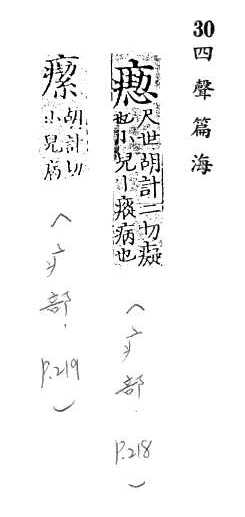 30 四聲篇海
尺世胡計二切癡
也小兒病也
（疒部. P.218）
胡計切
小兒病
（疒部. P.219）